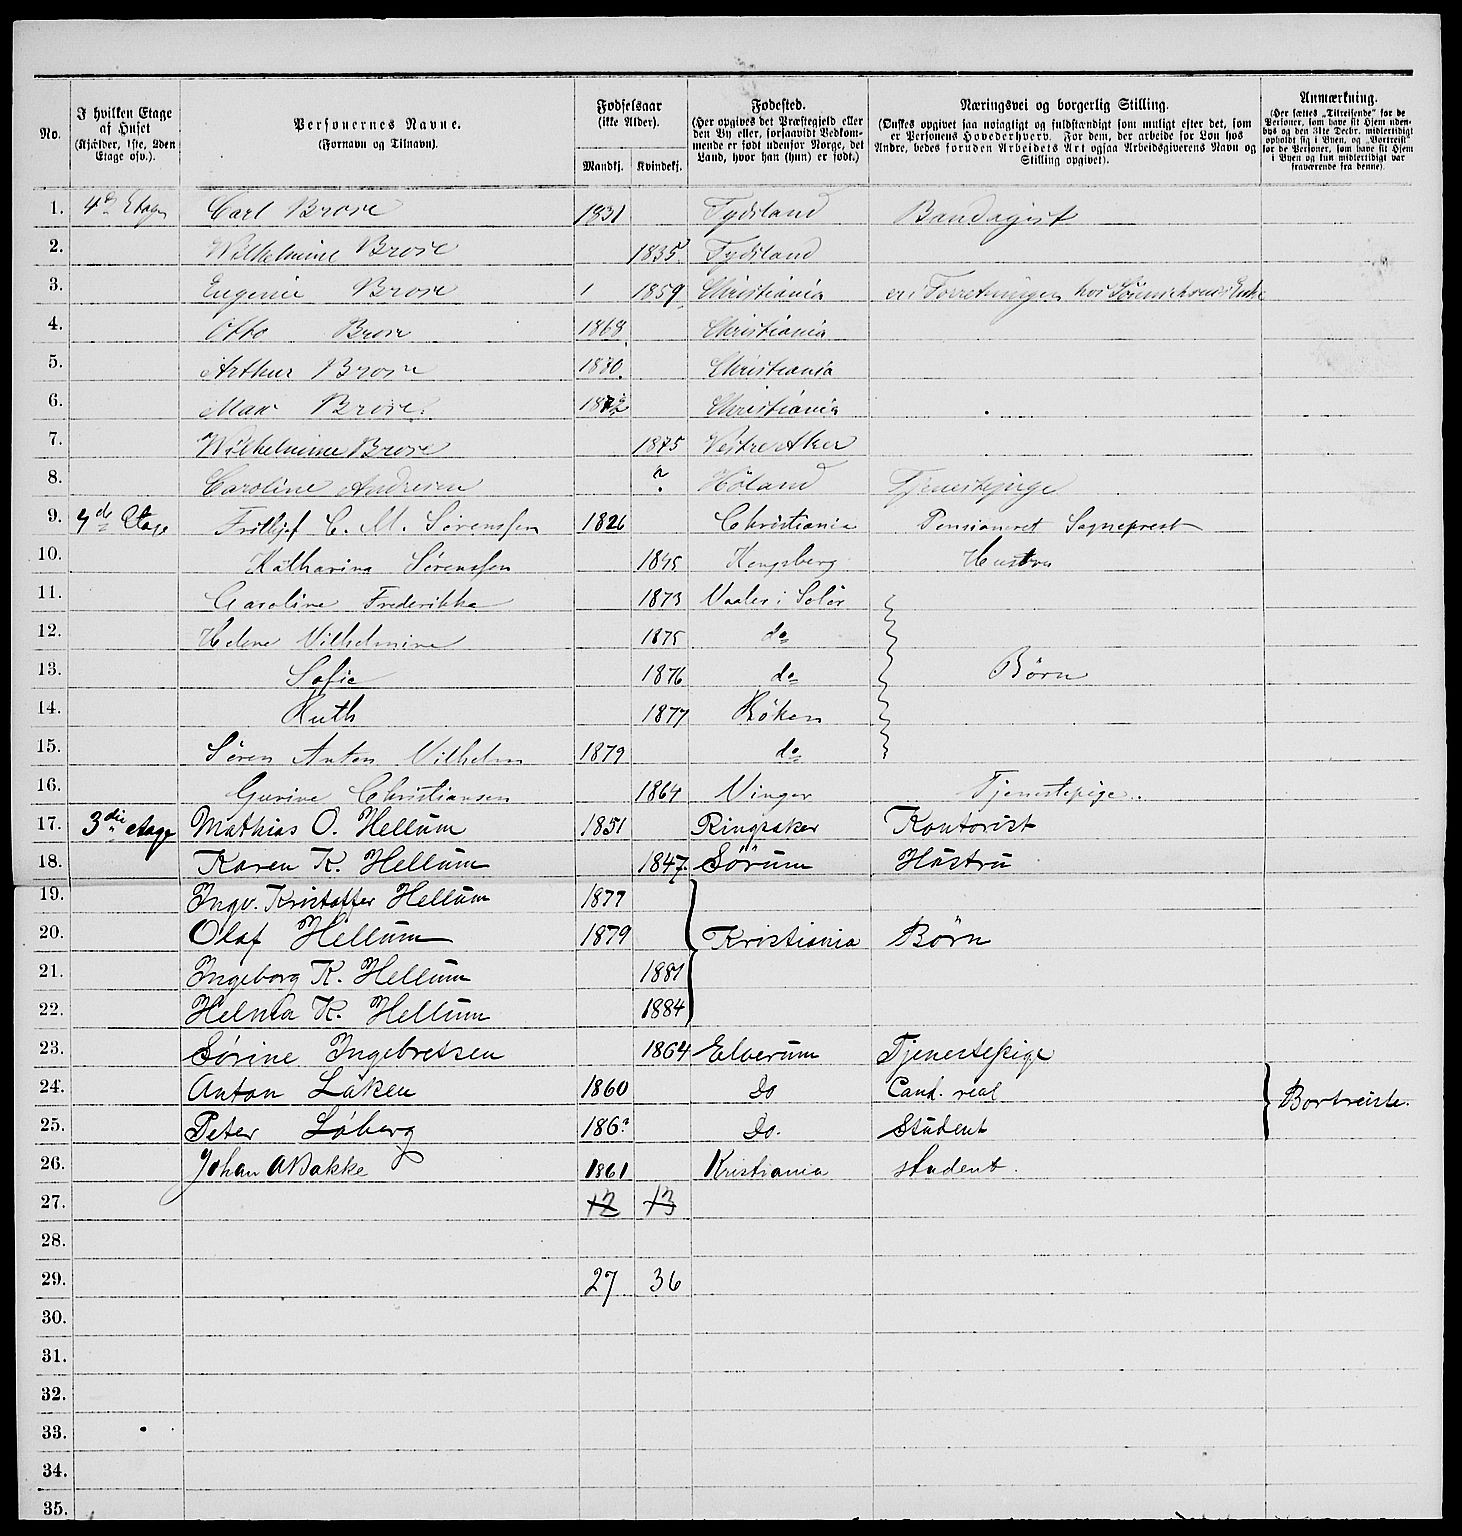 No.
I hvilken Etage af Huset (Kjælder, 1ste, 2den Etage osv.).
Personernes Navne. (Fornavn og Tilnavn).
Fødselsaar (ikke Alder).
Mandkj. Kvindekj.
Fødested. (Her opgives det Præstegjeld eller den By eller, forsaavidt Vedkommende er født udenfor Norge, det Land, hvor han (hun) er født.)
Næringsvei og borgerlig Stilling. (Ønskes opgivet saa nøiagtigt og fuldstændigt som muligt efter det, som er Personens Hovederhverv. For dem, der arbeide for Løn hos Andre, bedes foruden Arbeidets Art ogsaa Arbeidsgiverens Navn og Stilling opgivet).
Anmærkning. (Her sættes „Tilreisende“ for de Personer, som have sit Hjem udenbys og den 31te Decbr. midlertidigt opholdt sig i Byen, og „Bortreist“ for de Personer, som have sit Hjem i Byen og kun midlertidigt var fraværende fra denne).
1. 4de Etage Carl Brose 1831 Tydsland Bandagist
2. Wilhelmine Brose 1835 Tydsland
3. Eugenie Brose 1859 Christiania er i Forretningen hos Enke
4. Otto Brose 1868 Christiania
5. Arthur Brose 1870. Christiania
6. Max Brose. 1872 Christiania
7. Wilhelmine Brose 1875 Vestre Aker
8. Caroline Andresen ? Høland Tjenestepige
9. 4de Etage Frithjof C. M. Sørenssen 1826 Christiania Pensioneret Sogneprest
10. Katharina Sørenssen 1845 Kongsberg Hustru
11. Caroline Frederikke 1873 Vaaler i Solør
12. Helene Vilhelmine 1875 do
13. Sofie 1876 do Børn
14. Ruth 1877 Røken
15. Søren Anton Vilhelm 1879 do
16. Gurine Christiansen 1864 Vinger Tjenestepige.
17. 3die etage Mathias O. Hellum 1851 Ringsaker Kontorist
18. Karen K. Hellum 1847. Sørum Hustru
19. Ingv. Kristoffer Hellum 1877
20. Olaf Hellum 1879 Kristiania Børn
21. Ingeborg K. Hellum 1881
22. Helma K. Hellum 1884
23. Sørine Ingebretsen 1864 Elverum Tjenestepige
24. Anton Løken 1860 Do Cand. real Bortreiste.
25. Peter Løberg 186? Do. Student
26. Johan A Bakke 1861 Kristiania student.
27. 12 13
28.
29. 27 36
30.
31.
32.
33.
34.
35.